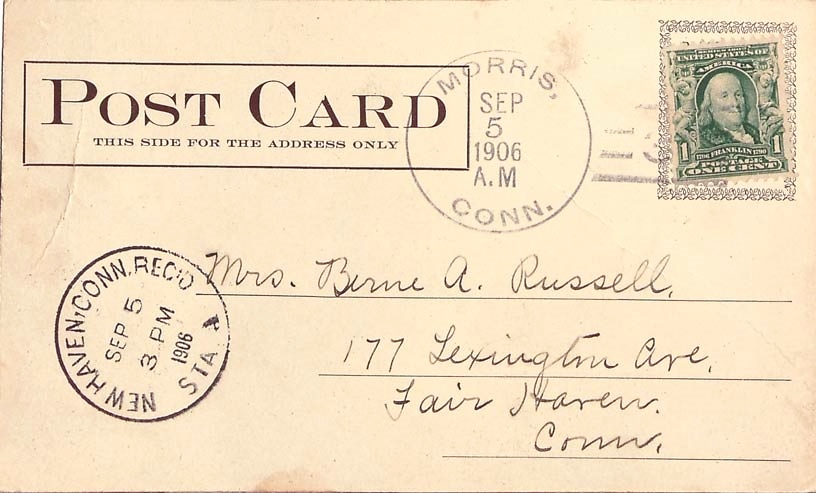 POST CARD
THIS SIDE FOR THE ADDRESS ONLY
MORRIS,
SEP
5
1906
A.M
CONN.
UNITED STATES OF
AMERICA
1706 FRANKLIN 1790
1 POSTAGE 1
ONE CENT
NEW HAVEN, CONN. REC'D
SEP 5
3 PM
1906
STA.
Mrs. Berne A. Russell,
177 Lexington Ave,
Fair Haven.
Conn.